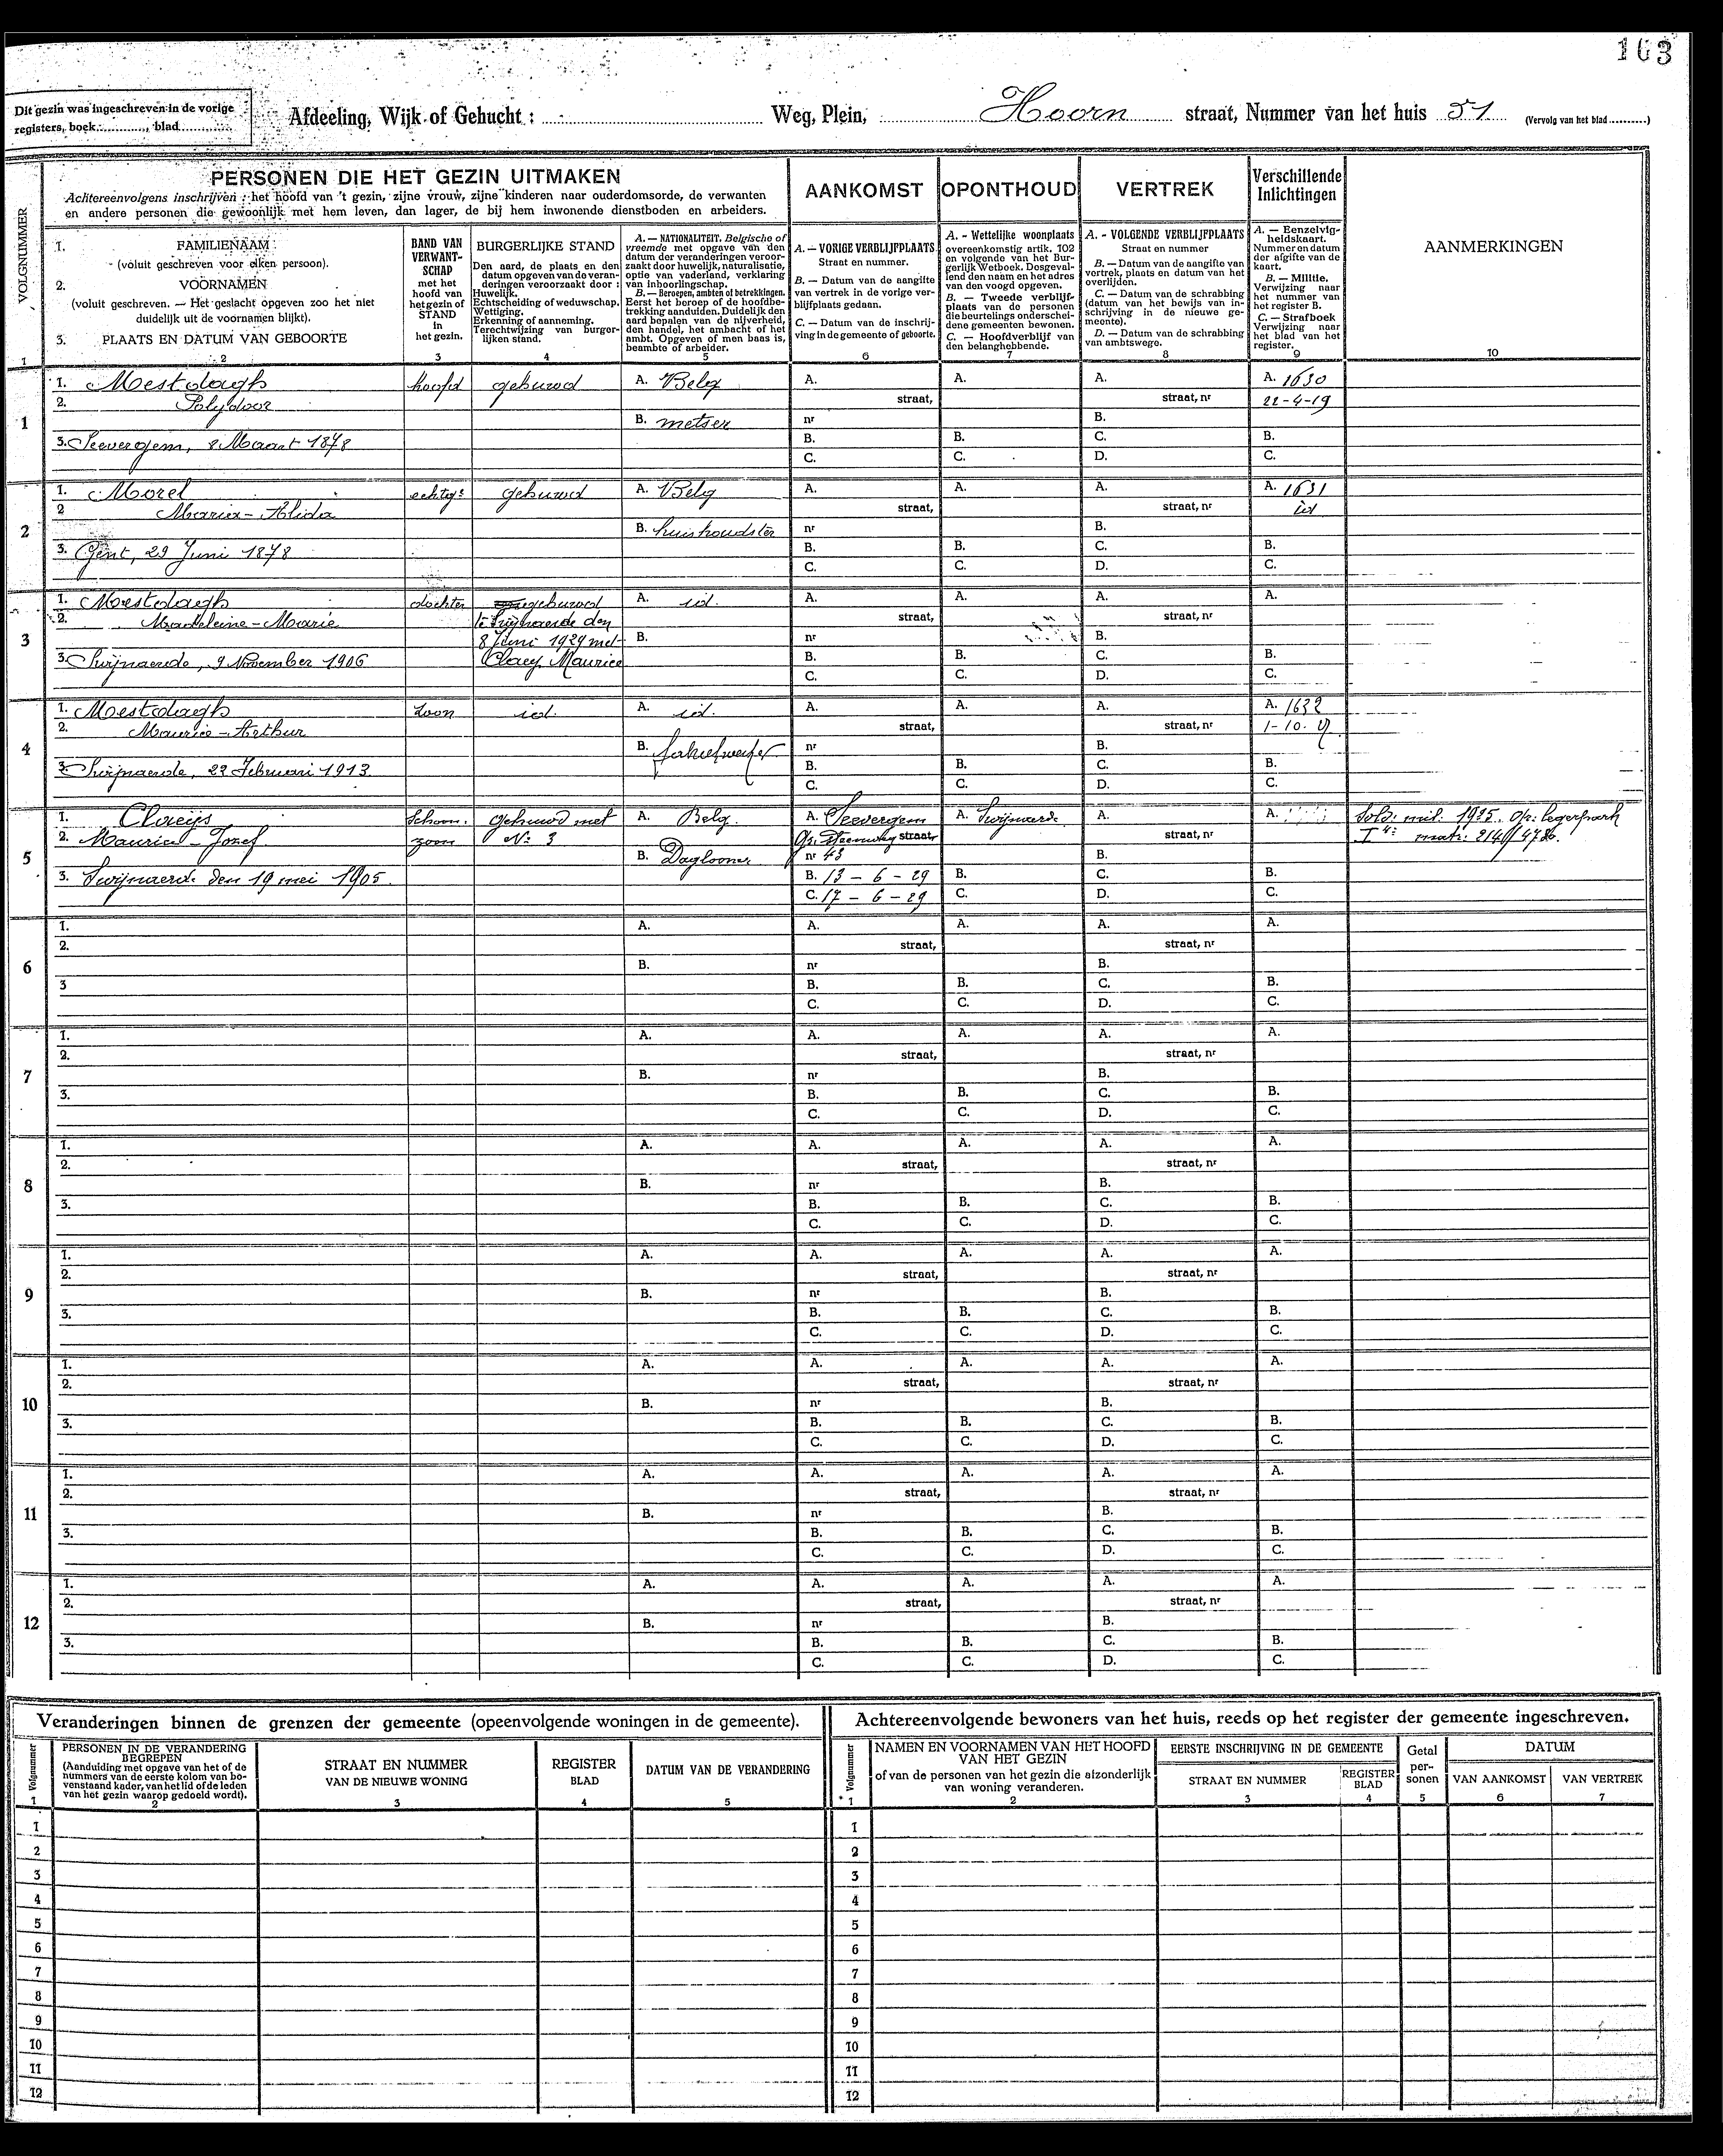 163
Dit gezin was ingeschreven in de vorige
registers, boek ............, blad ............
Afdeeling, Wijk of Gehucht : Weg, Plein, Hoorn straat, Nummer van het huis 51 (Vervolg van het blad ..........)
VOLGNUMMER
PERSONEN DIE HET GEZIN UITMAKEN
Achtereenvolgens inschrijven : het hoofd van 't gezin, zijne vrouw, zijne kinderen naar ouderdomsorde, de verwanten
en andere personen die gewoonlijk met hem leven, dan lager, de bij hem inwonende dienstboden en arbeiders.
AANKOMST
OPONTHOUD
VERTREK
Verschillende
Inlichtingen
1. FAMILIENAAM
(voluit geschreven voor elken persoon).
2. VOORNAMEN
(voluit geschreven. — Het geslacht opgeven zoo het niet
duidelijk uit de voornamen blijkt).
3. PLAATS EN DATUM VAN GEBOORTE
BAND VAN
VERWANT-
SCHAP
met het
hoofd van
het gezin of
STAND
in
het gezin.
BURGERLIJKE STAND
Den aard, de plaats en den
datum opgeven van de veran-
deringen veroorzaakt door :
Huwelijk.
Echtscheiding of weduwschap.
Wettiging.
Erkenning of aanneming.
Terechtwijzing van burger-
lijken stand.
A. — NATIONALITEIT. Belgische of
vreemde met opgave van den
datum der veranderingen veroor-
zaakt door huwelijk, naturalisatie,
optie van vaderland, verklaring
van inboorlingschap.
B. — Beroepen, ambten of betrekkingen.
Eerst het beroep of de hoofdbe-
trekking aanduiden. Duidelijk den
aard bepalen van de nijverheid,
den handel, het ambacht of het
ambt. Opgeven of men baas is,
beambte of arbeider.
A. — VORIGE VERBLIJFPLAATS
Straat en nummer.
B. — Datum van de aangifte
van vertrek in de vorige ver-
blijfplaats gedaan.
C. — Datum van de inschrij-
ving in de gemeente of geboorte.
A. - Wettelijke woonplaats
overeenkomstig artik. 102
en volgende van het Bur-
gerlijk Wetboek. Desgeval-
lend den naam en het adres
van den voogd opgeven.
B. — Tweede verblijf-
plaats van de personen
die beurtelings onderschei-
dene gemeenten bewonen.
C. — Hoofdverblijf van
den belanghebbende.
A. - VOLGENDE VERBLIJFPLAATS
Straat en nummer
B. — Datum van de aangifte van
vertrek, plaats en datum van het
overlijden.
C. — Datum van de schrabbing
(datum van het bewijs van in-
schrijving in de nieuwe ge-
meente).
D. — Datum van de schrabbing
van ambtswege.
A. — Eenzelvig-
heidskaart.
Nummer en datum
der afgifte van de
kaart.
B. — Militie.
Verwijzing naar
het nummer van
het register B.
C. — Strafboek
Verwijzing naar
het blad van het
register.
AANMERKINGEN
1 2 3 4 5 6 7 8 9 10
1
1. Mestdagh hoofd gehuwd A. Belg A. A. A. A. 1630
2. Polydoor straat, straat, nr 22-4-19
B. metser nr B.
3. Seevergem, 8 Maart 1878 B. B. C. B.
C. C. D. C.
2
1. Morel echtg. gehuwd A. Belg A. A. A. A. 1631
2 Maria-Alida straat, straat, nr id
B. huishoudster nr B.
3. Gent, 29 Juni 1878 B. B. C. B.
C. C. D. C.
3
1. Mestdagh dochter gehuwd A. id. A. A. A. A.
2. Madeleine-Marie te Swijnaerde den straat, straat, nr
8 Juni 1929 met B. nr B.
3. Swijnaerde, 9 November 1906 Claeys Maurice B. B. C. B.
C. C. D. C.
4
1. Mestdagh zoon id. A. id. A. A. A. A. 1632
2. Maurice-Arthur straat, straat, nr 1-10.
B. nr B.
3. Swijnaerde, 22 Februari 1913 B. B. C. B.
C. C. D. C.
5
1. Claeijs Schoon- gehuwd met A. Belg. A. Seevergem A. Swijnaerde A. A. Sold. mil. 1925. Op. legerpark
2. Maurice-Jozef zoon N: 3 Gr. Steenweg straat, straat, nr matr: 2140/4786.
B. Daglooner nr 43 B.
3. Swijnaerde den 19 mei 1905. B. 13-6-29 B. C. B.
C. 17-6-29 C. D. C.
6
1. A. A. A. A. A.
2. straat, straat, nr
B. nr B.
3 B. B. C. B.
C. C. D. C.
7
1. A. A. A. A. A.
2. straat, straat, nr
B. nr B.
3. B. B. C. B.
C. C. D. C.
8
1. A. A. A. A. A.
2. straat, straat, nr
B. nr B.
3. B. B. C. B.
C. C. D. C.
9
1. A. A. A. A. A.
2. straat, straat, nr
B. nr B.
3. B. B. C. B.
C. C. D. C.
10
1. A. A. A. A. A.
2. straat, straat, nr
B. nr B.
3. B. B. C. B.
C. C. D. C.
11
1. A. A. A. A. A.
2. straat, straat, nr
B. nr B.
3. B. B. C. B.
C. C. D. C.
12
1. A. A. A. A. A.
2. straat, straat, nr
B. nr B.
3. B. B. C. B.
C. C. D. C.
Veranderingen binnen de grenzen der gemeente (opeenvolgende woningen in de gemeente).
Volgnummer
PERSONEN IN DE VERANDERING
BEGREPEN
(Aanduiding met opgave van het of de
nummers van de eerste kolom van bo-
venstaand kader, van het lid of de leden
van het gezin waarop gedoeld wordt).
STRAAT EN NUMMER
VAN DE NIEUWE WONING
REGISTER
BLAD
DATUM VAN DE VERANDERING
1 2 3 4 5
1
2
3
4
5
6
7
8
9
10
11
12
Achtereenvolgende bewoners van het huis, reeds op het register der gemeente ingeschreven.
Volgnummer
NAMEN EN VOORNAMEN VAN HET HOOFD
VAN HET GEZIN
of van de personen van het gezin die afzonderlijk
van woning veranderen.
EERSTE INSCHRIJVING IN DE GEMEENTE
STRAAT EN NUMMER
REGISTER
BLAD
Getal
per-
sonen
DATUM
VAN AANKOMST
VAN VERTREK
1 2 3 4 5 6 7
1
2
3
4
5
6
7
8
9
10
11
12